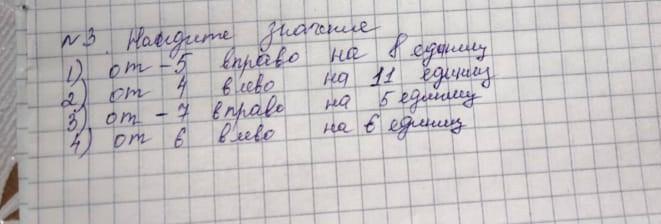 N3. Найдите значение
1) от -5 вправо на 8 единиц
2) от 4 влево на 11 единиц
3) от -7 вправо на 5 единиц
4) от 6 влево на 6 единиц